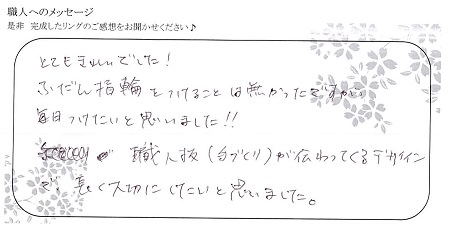 職人へのメッセージ
是非 完成したリングのご感想をお聞かせください♪
とてもきれいでした！
ふだん指輪をつけることは無かったですが、
毎日つけたいと思いました!!
職人技（手づくり）が伝わってくるデザイン
で 長く大切にしたいと思いました。